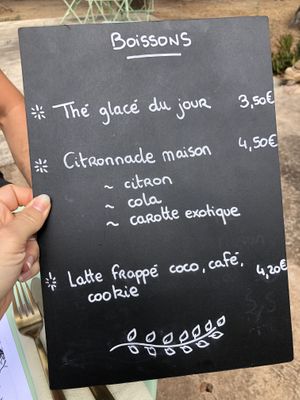 Boissons
Thé glacé du jour 3,50€
Citronnade maison 4,50€
~ citron
~ cola
~ carotte exotique
Latte frappé coco, café, 4,20€
cookie